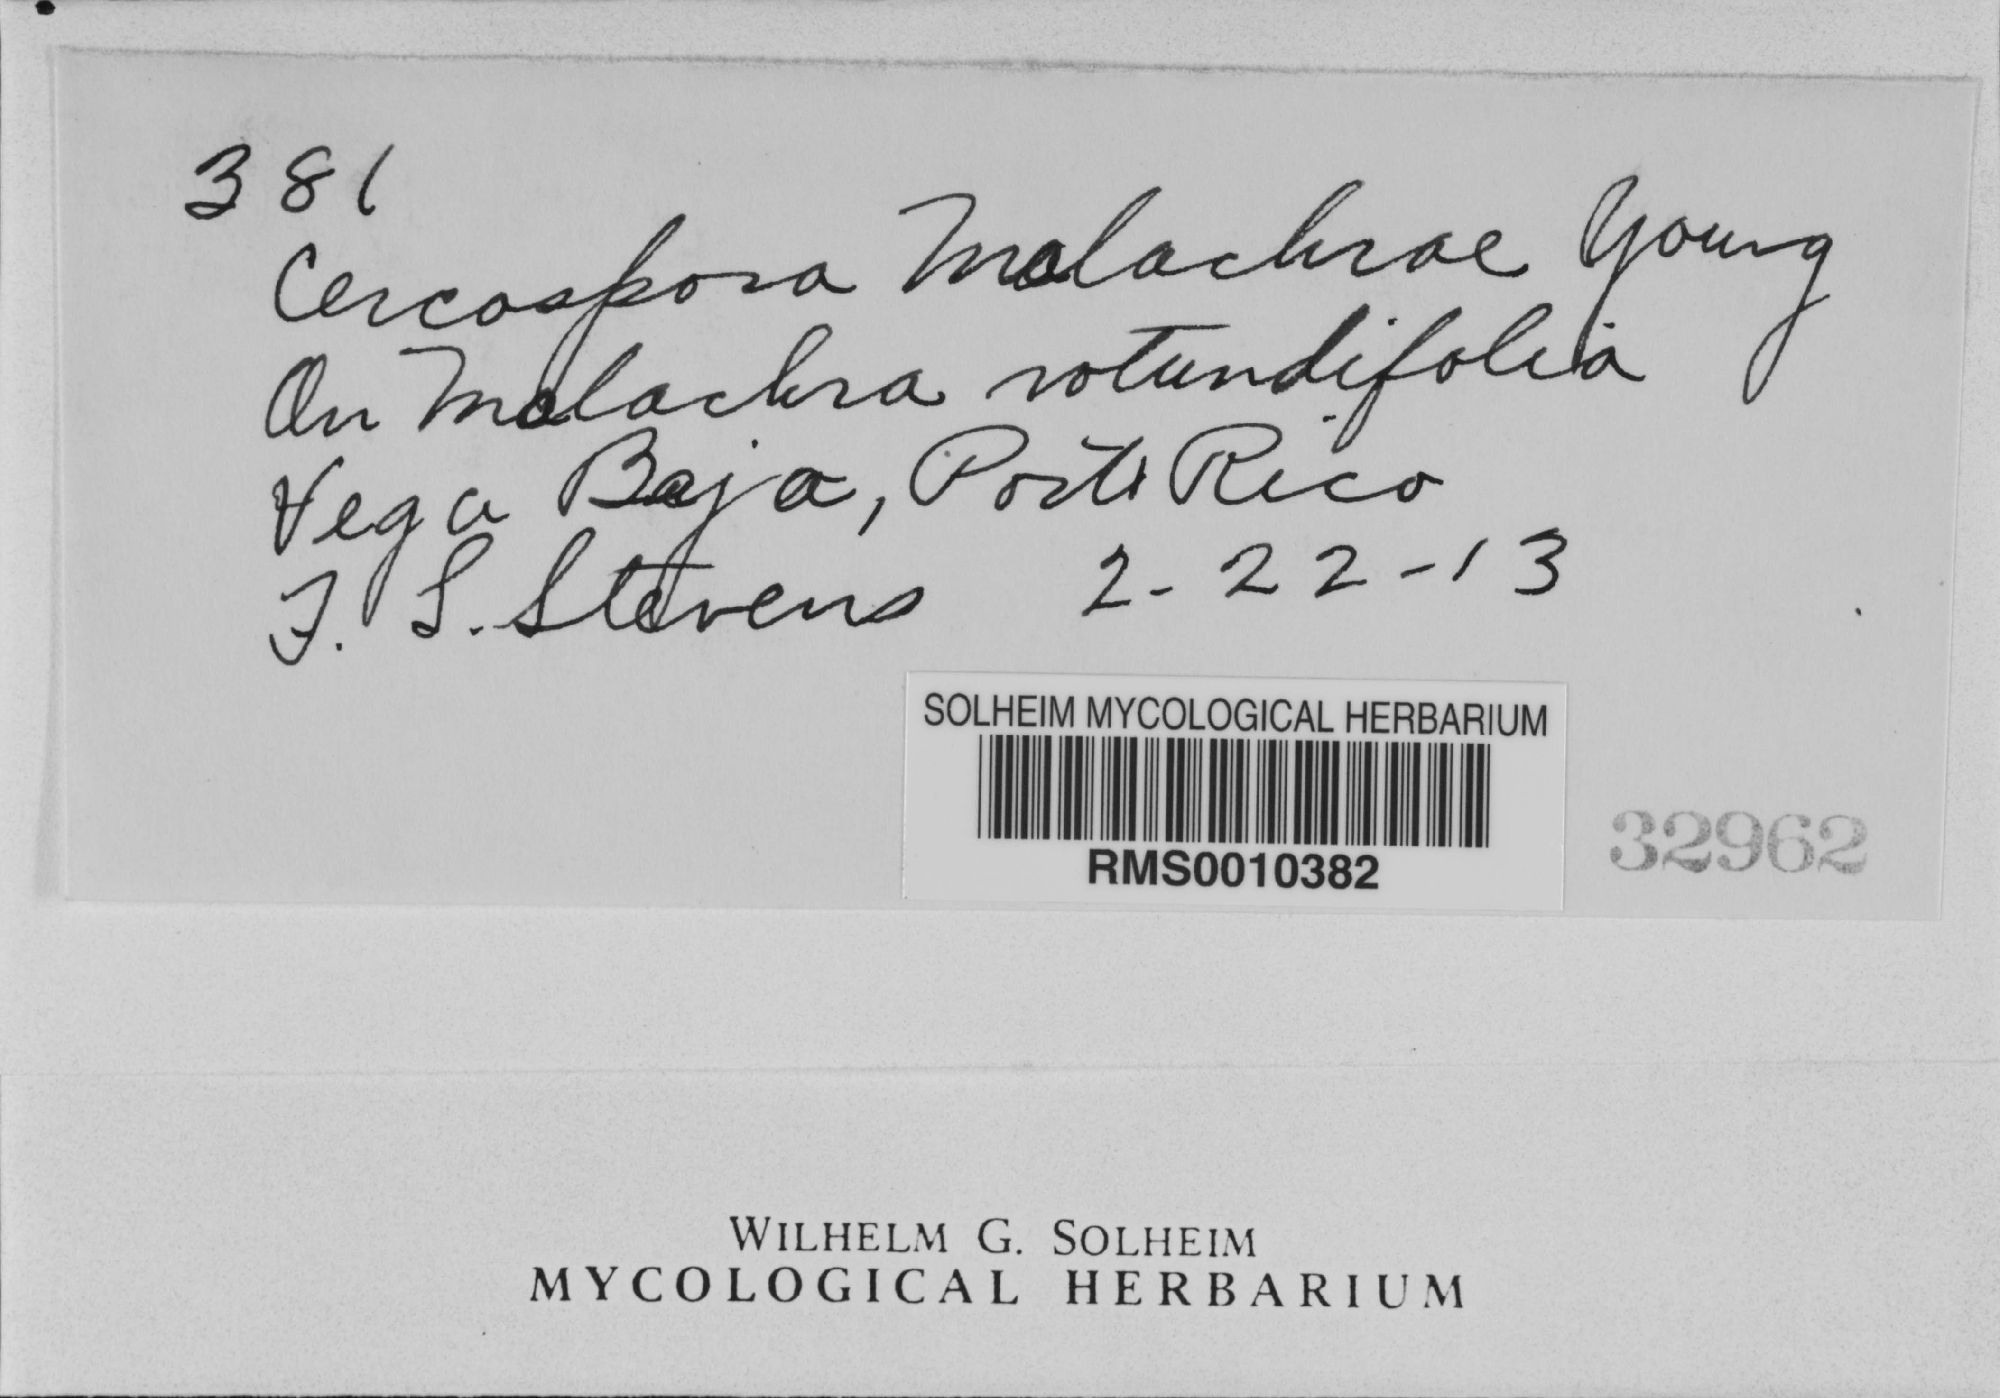 381
Cercospora Malachrae Young
On Malachra rotundifolia
Vega Baja, Porto Rico
F. L. Stevens 2-22-13
SOLHEIM MYCOLOGICAL HERBARIUM
RMS0010382
32962
WILHELM G. SOLHEIM
MYCOLOGICAL HERBARIUM